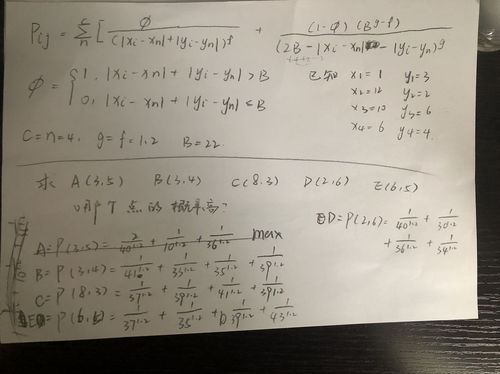 Pij = Σ [ φ / (|xi-xn|+|yi-yn|)^f + (1-φ)(B^g-f) / (2B-|xi-xn|-|yi-yn|)^g
φ = { 1, |xi-xn|+|yi-yn| > B
0, |xi-xn|+|yi-yn| ≤ B
已知 x1=1 y1=3
x2=12 y2=2
x3=10 y3=6
x4=6 y4=4.
C=n=4, g=f=1.2 B=22.
求 A(3,5) B(3,4) C(8,3) D(2,6) E(6,5)
哪个点的概率高?
A=P(3,5)= 2/40^1.2 + 1/10^1.2 + 1/36^1.2 max
B=P(3,4)= 1/41^1.2 + 1/33^1.2 + 1/35^1.2 + 1/39^1.2
C=P(8,3)= 1/37^1.2 + 1/39^1.2 + 1/41^1.2 + 1/39^1.2
=P(6, )= 1/37^1.2 + 1/35^1.2 + 1/39^1.2 + 1/43^1.2
D=P(2,6)= 1/40^1.2 + 1/30^1.2
+ 1/36^1.2 + 1/34^1.2